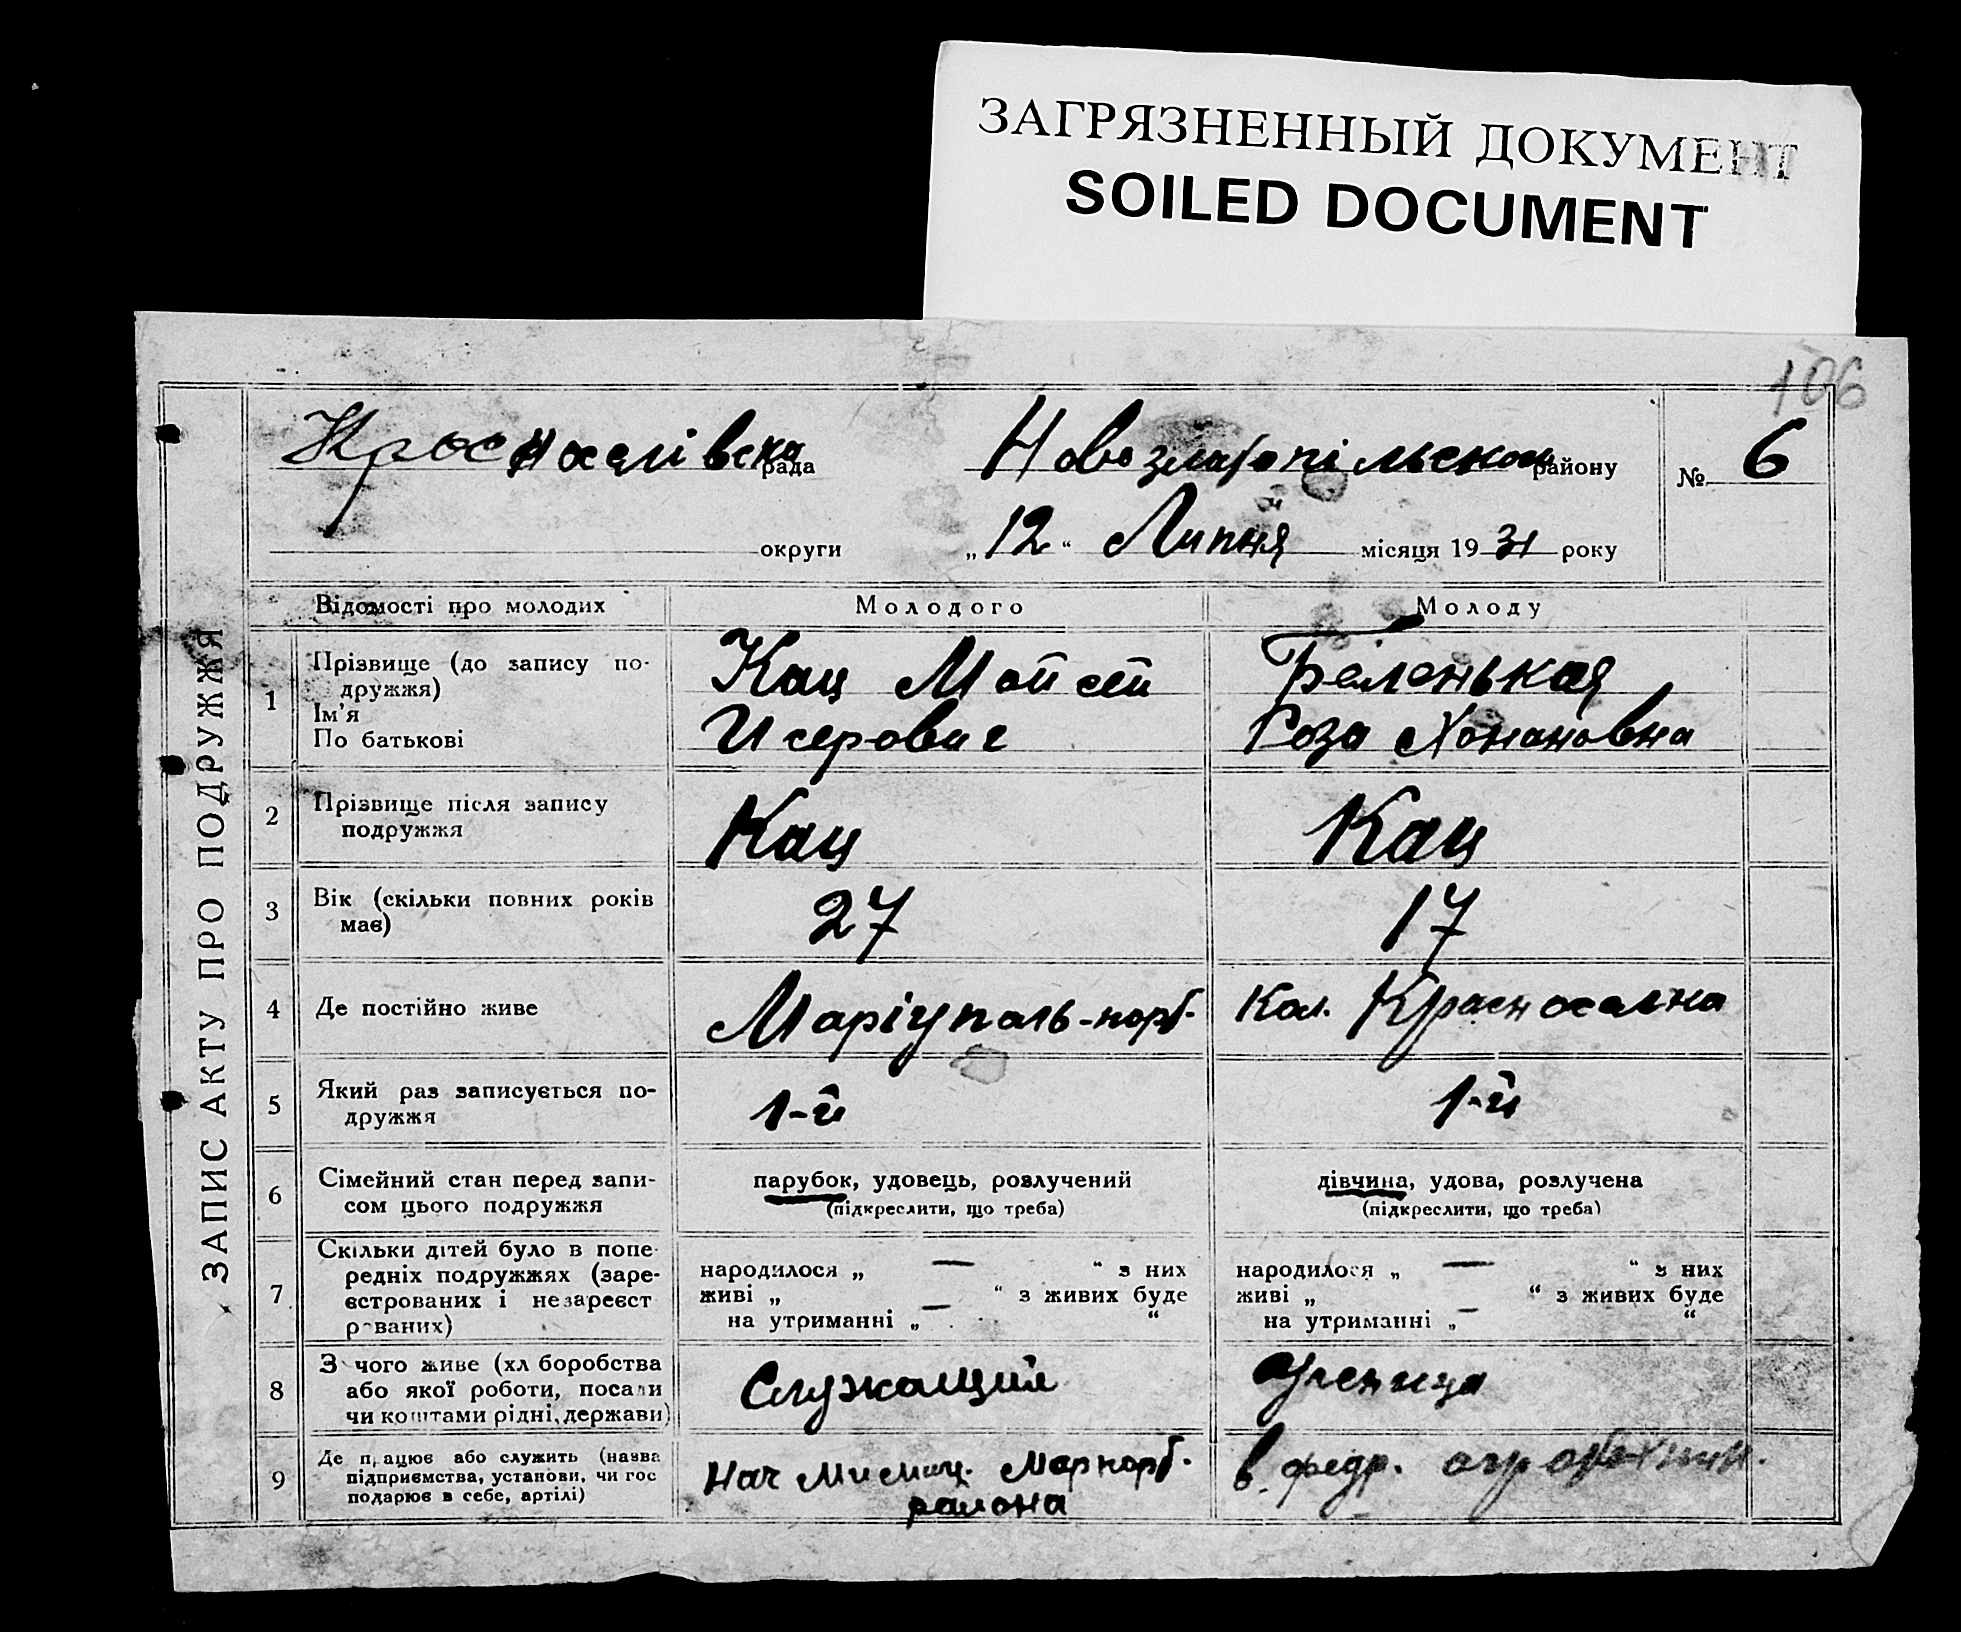 ЗАГРЯЗНЕННЫЙ ДОКУМЕНТ
SOILED DOCUMENT
106
Красноселівска рада Новозлатопільского району № 6
округи „12“ Липня місяця 1931 року
ЗАПИС АКТУ ПРО ПОДРУЖЖЯ
Відомості про молодих Молодого Молоду
1 Прізвище (до запису по-
дружжя)
Ім'я
По батькові
Кац Мойсей
Исерович
Беленькая
Роза Хонановна
2 Прізвище після запису
подружжя
Кац
Кац
3 Вік (скільки повних років
має)
27
17
4 Де постійно живе
Маріуполь-порт.
Кол. Красноселка
5 Який раз записується по-
дружжя
1-й
1-й
6 Сімейний стан перед запи-
сом цього подружжя
парубок, удовець, розлучений
(підкреслити, що треба)
дівчина, удова, розлучена
(підкреслити, що треба)
7 Скільки дітей було в попе-
редніх подружжях (заре-
єстрованих і незареєст
рованих)
народилося „ — “ з них
живі „ “ з живих буде
на утриманні „ — “
народилося „ — “ з них
живі „ “ з живих буде
на утриманні „ — “
8 З чого живе (хліборобства
або якої роботи, посади
чи коштами рідні, держави)
Служащий
Ученица
9 Де працює або служить (назва
підприємства, установи, чи гос
подарює в себе, артілі)
Нач Милиц. Марпорт.
района
в педр.